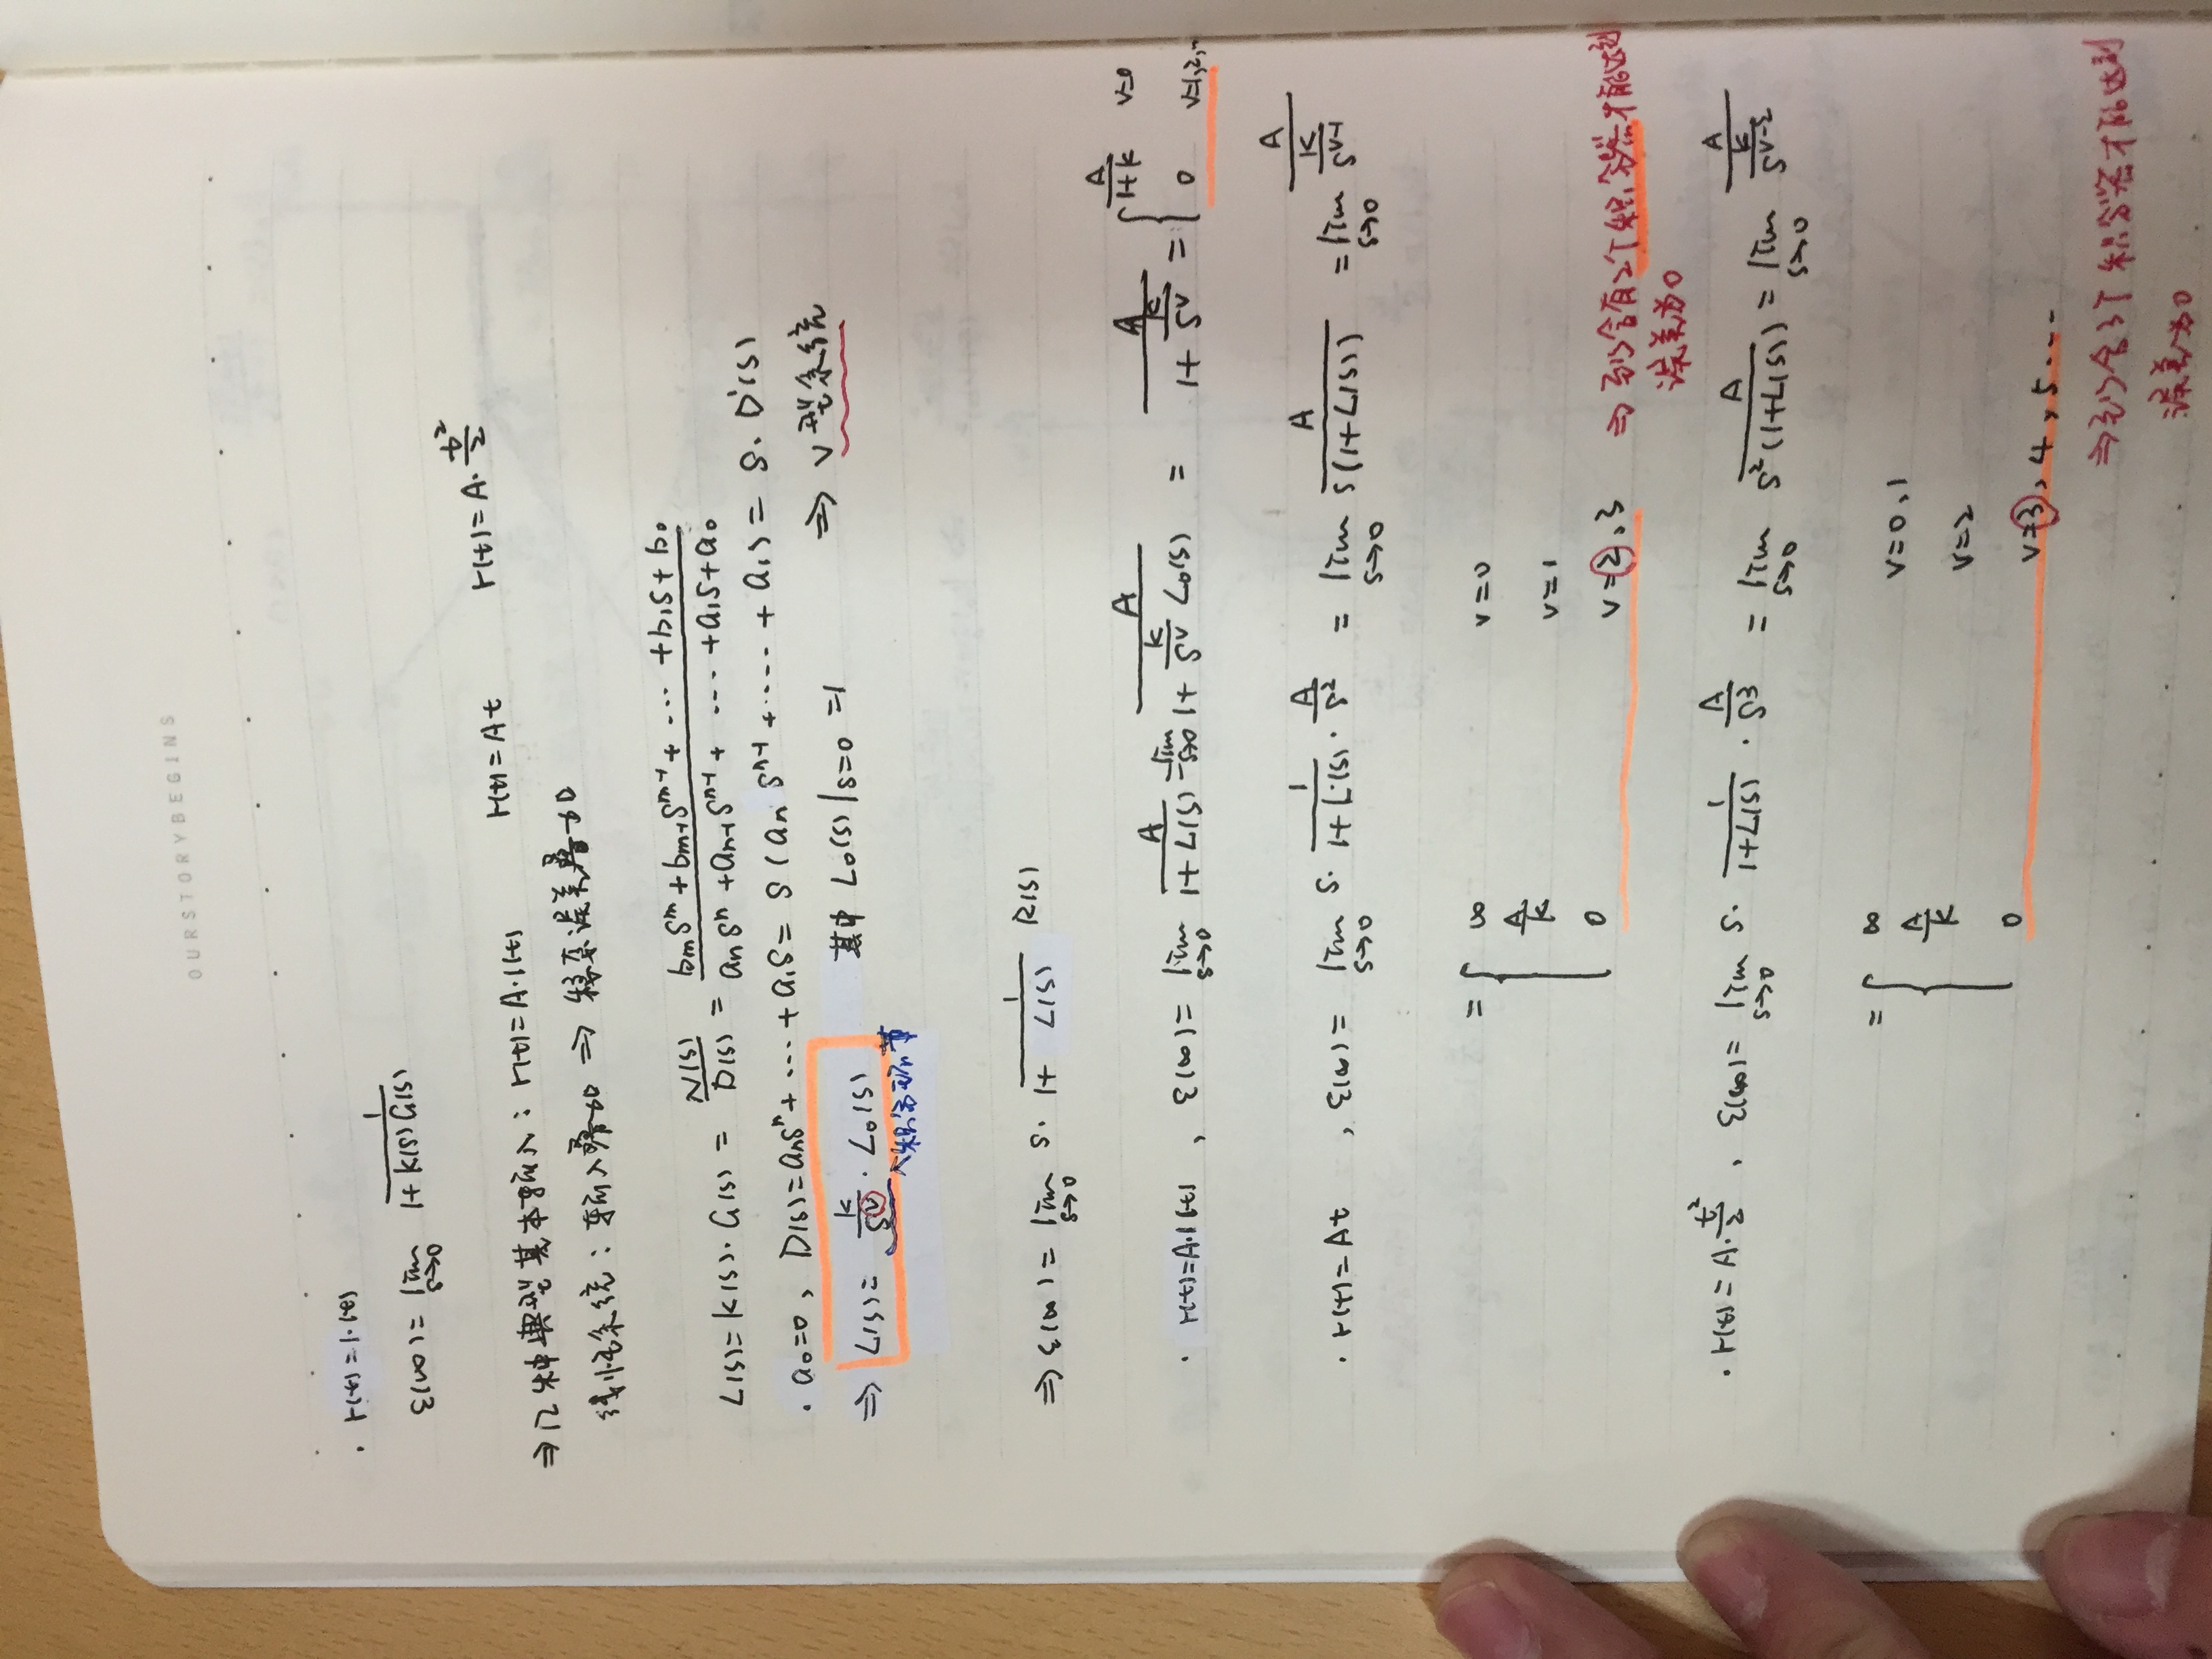 OURSTORYBEGINS
· r(t)=1·(t)
ε(∞)= lim s→0 1/(1+K(s)G(s))
⇒几种典型基本输入: r(t)=A·1(t) r(t)=At r(t)=A·t²/2
线性系统: 输入叠加 ⇒ 稳态误差叠加
L(s)=K(s)·G(s) = N(s)/D(s) = (bₘsᵐ+bₘ₋₁sᵐ⁻¹+ ··· +b₁s+b₀)/(aₙsⁿ+aₙ₋₁sⁿ⁻¹+ ··· +a₁s+a₀)
· a₀=0, D(s)=aₙsⁿ+ ··· +a₁s= s(aₙsⁿ⁻¹+ ···· +a₁)= s·D'(s)
⇒ L(s)= k/s^v · L₀(s) 其中 L₀(s)|s=0 =1 ⇒ v型系统
积分
⇒ε(∞)= lim s→0 s· 1/(1+ L(s)) R(s)
· r(t)=A·1(t), ε(∞)= lim s→0 A/(1+L(s)) = lim s→0 A/(1+ k/s^v L₀(s)) = A/(1+ k/s^v) = { A/(1+k) v=0
0 v=1,2,··
· r(t)=At , ε(∞)= lim s→0 s· 1/(1+L(s)) · A/s² = lim s→0 A/(s(1+L(s))) = lim s→0 A/(k/s^(v-1))
= { ∞ v=0
A/k v=1
0 v=2,3 ⇒至少含有2个积分器才能达到
误差为0
· r(t)=A·t²/2, ε(∞)= lim s→0 s· 1/(1+L(s)) · A/s³ = lim s→0 A/(s²(1+L(s))) = lim s→0 A/(k/s^(v-2))
= { ∞ v=0,1
A/k v=2
0 v=3,4,5····
⇒至少含3个积分器才能达到
误差为0